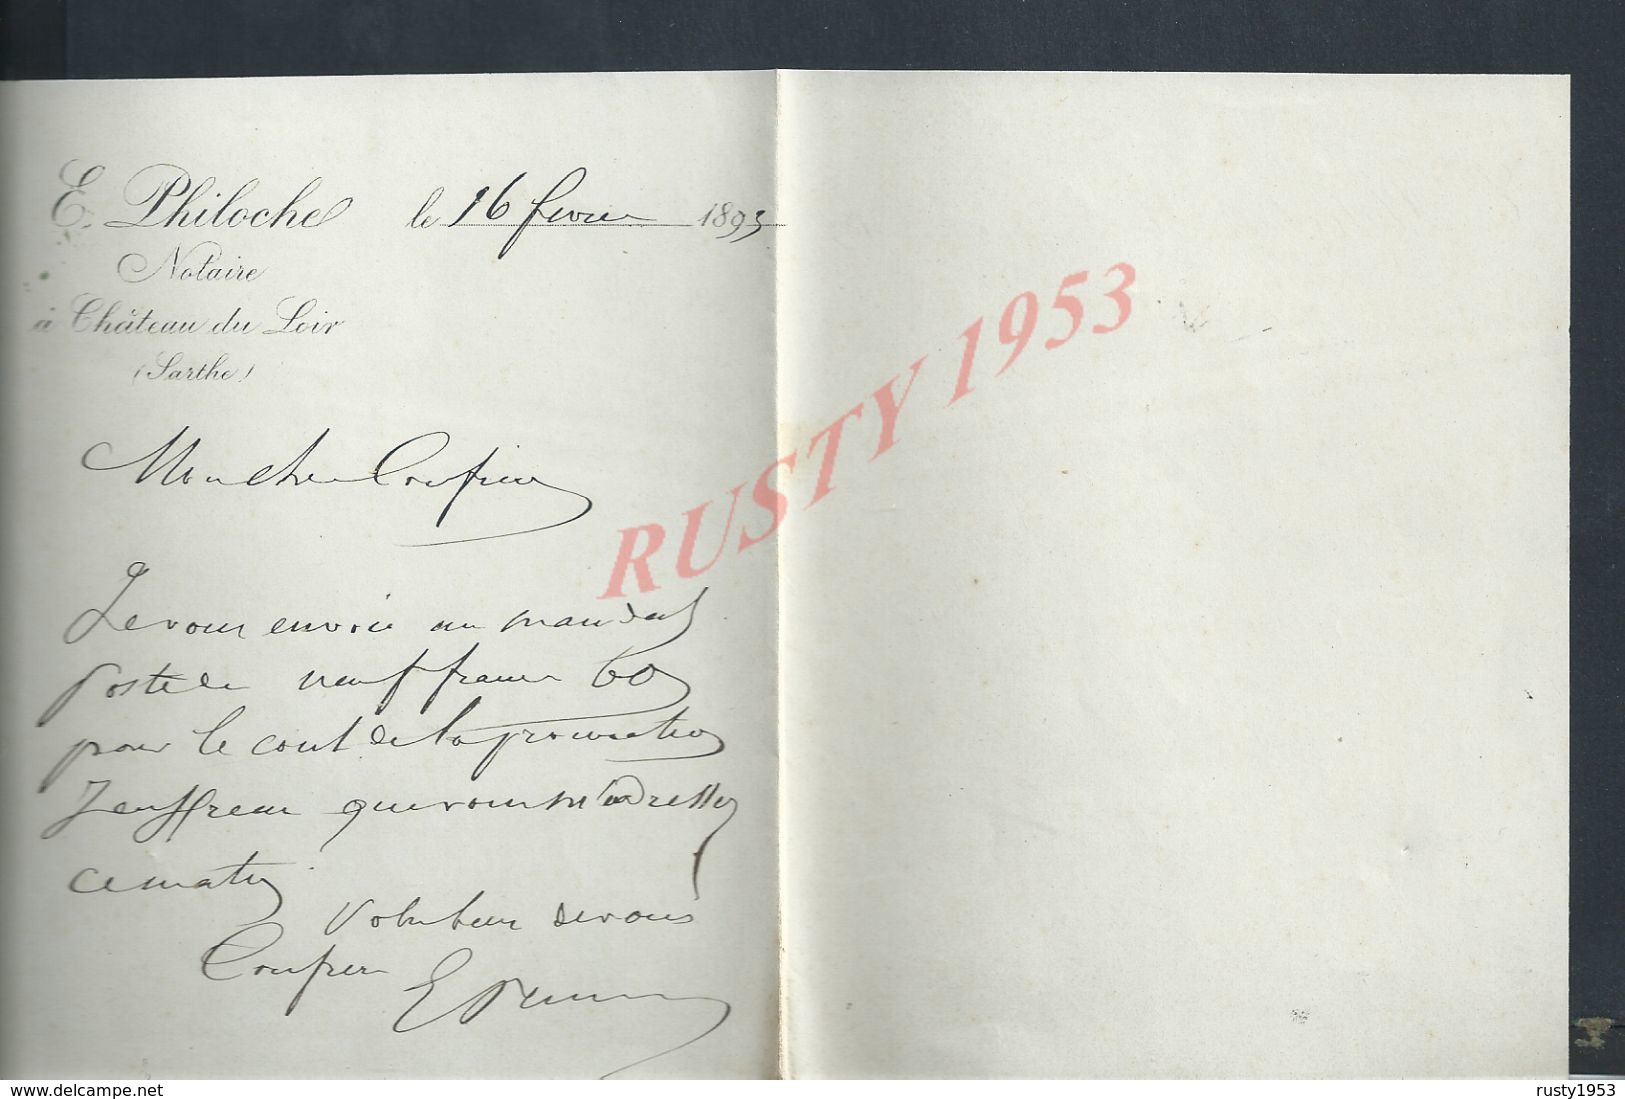 E. Philoche le 16 fevrier 1893
Notaire
à Château du Loir
(Sarthe)
Mon cher Confrere
RUSTY 1953
Je vous envoie un mandat
poste de neuf francs 60
pour le cout de la procuration
que vous m'adressez
ce matin
Votre bien devoué
Confrere
www.delcampe.net
rusty1953